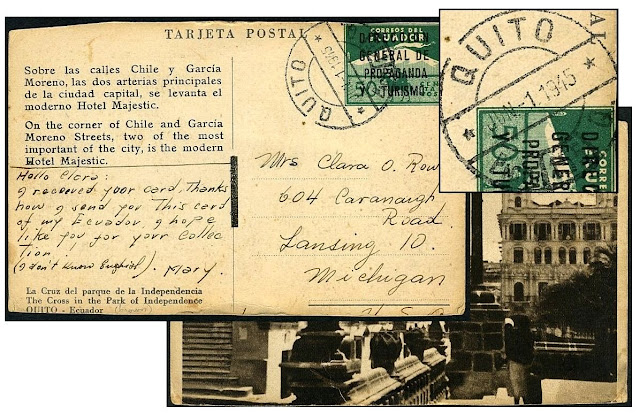 TARJETA POSTAL
Sobre las calles Chile y García
Moreno, las dos arterias principales
de la ciudad capital, se levanta el
moderno Hotel Majestic.
On the corner of Chile and García
Moreno Streets, two of the most
important of the city, is the modern
Hotel Majestic.
Hallo Clara:
I received your card, Thanks
now I send you This card
of my Ecuador, I hope
like you for your Collec
tion
(I don't know English). Mary.
La Cruz del parque de la Independencia
The Cross in the Park of Independence
QUITO - Ecuador (brown)
QUITO
CORREOS DEL
ECUADOR
GENERAL DE
PROPAGANDA
TURISMO
50
Mrs Clara O. Row
604 Cavanaugh
Road
Lansing 10.
Michigan
U.S.A
QUITO
1.1945
AL